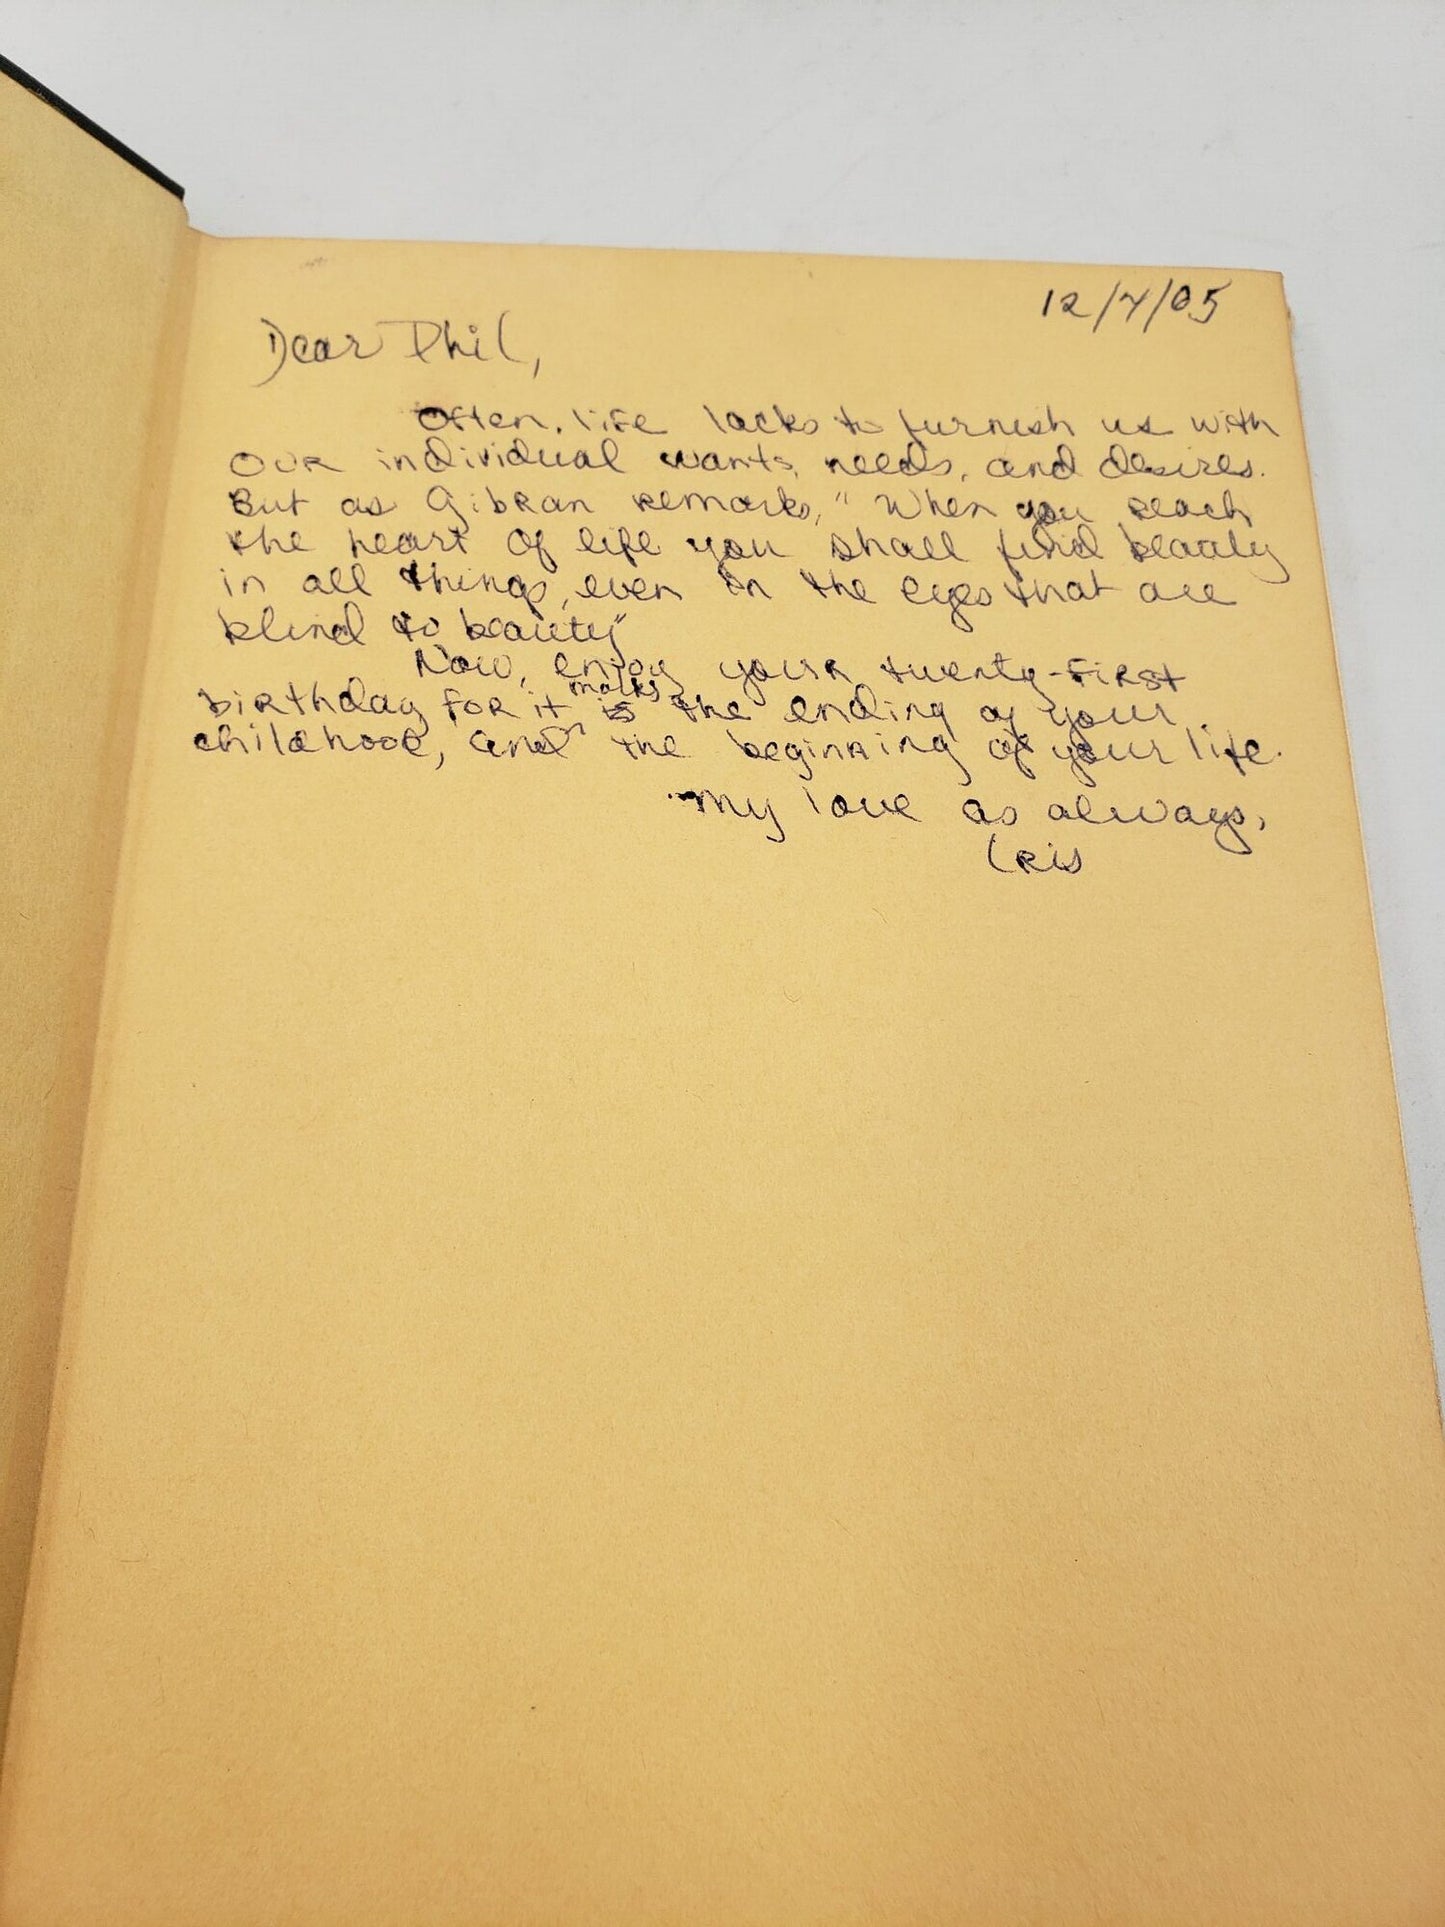 12/7/05
Dear Phil,
Often, life lacks to furnish us with
our individual wants, needs, and desires.
But as Gibran remarks, "When you reach
the heart of life you shall find beauty
in all things, even in the eyes that are
blind to beauty"
Now, enjoy your twenty-first
birthday for it marks the ending of your
childhood, and the beginning of your life.
My love as always,
Iris